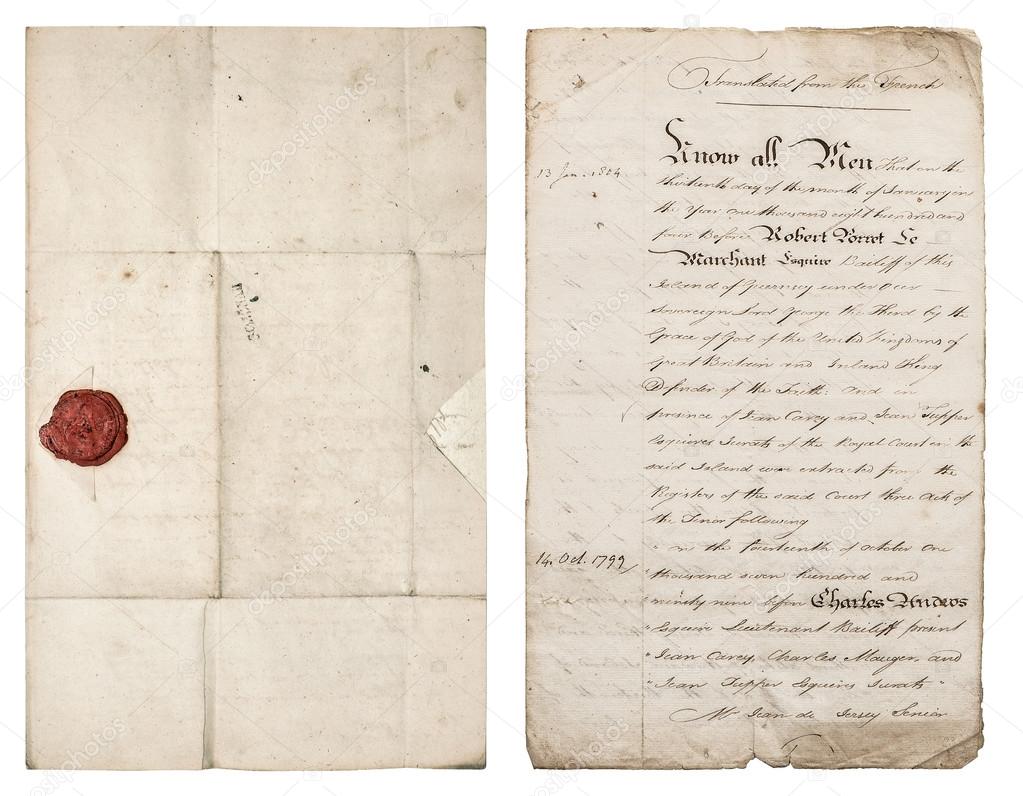 Translated from the French
Know all Men That on the
13 Jan. 1804
thirteenth day of the month of January in
the Year One thousand eight hundred and
four Before Robert Porret Le
Marchant Esquire Bailiff of this
Island of Guernsey under our
Sovereign Lord George the Third by the
Grace of God of the United Kingdoms of
Great Britain and Ireland King
Defender of the Faith: And in
presence of Jean Carey and Jean Tupper
Esquires Jurats of the Royal Court in the
said Island were extracted from the
Registers of the said Court three Acts of
the Tenor following
14. Oct. 1799
" on the fourteenth of October One
" thousand seven hundred and
" ninety nine before Charles Andros
" Esquire Lieutenant Bailiff present
" Jean Carey, Charles Mauger, and
" Jean Tupper Esquires Jurats "
Mr Jean de Jersey Senior